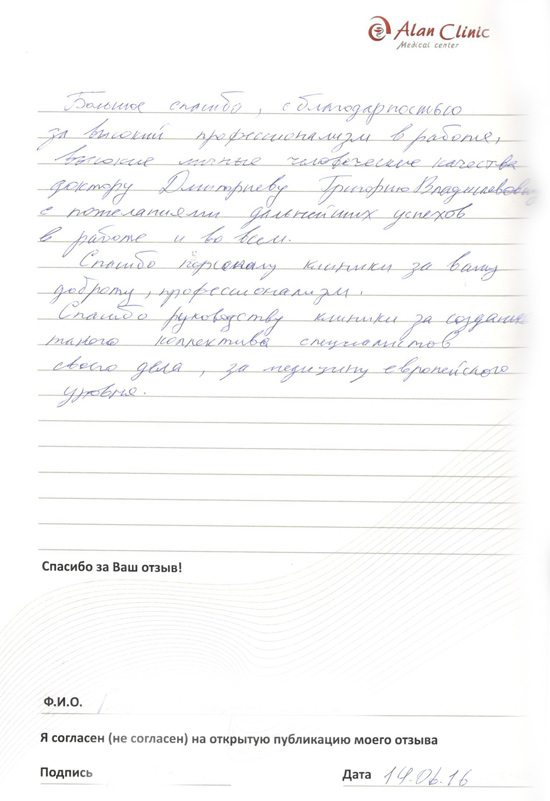 Alan Clinic
Medical center
Большое спасибо, с благодарностью
за высокий профессионализм в работе,
высокие личные человеческие качества
доктору Дмитриеву Григорию Владиславовичу
с пожеланиями дальнейших успехов
в работе и во всём.
Спасибо персоналу клиники за вашу
доброту, профессионализм.
Спасибо руководству клиники за создание
такого коллектива специалистов
своего дела, за медицину европейского
уровня.
Спасибо за Ваш отзыв!
Ф.И.О.
Я согласен (не согласен) на открытую публикацию моего отзыва
Подпись
Дата 14.06.16